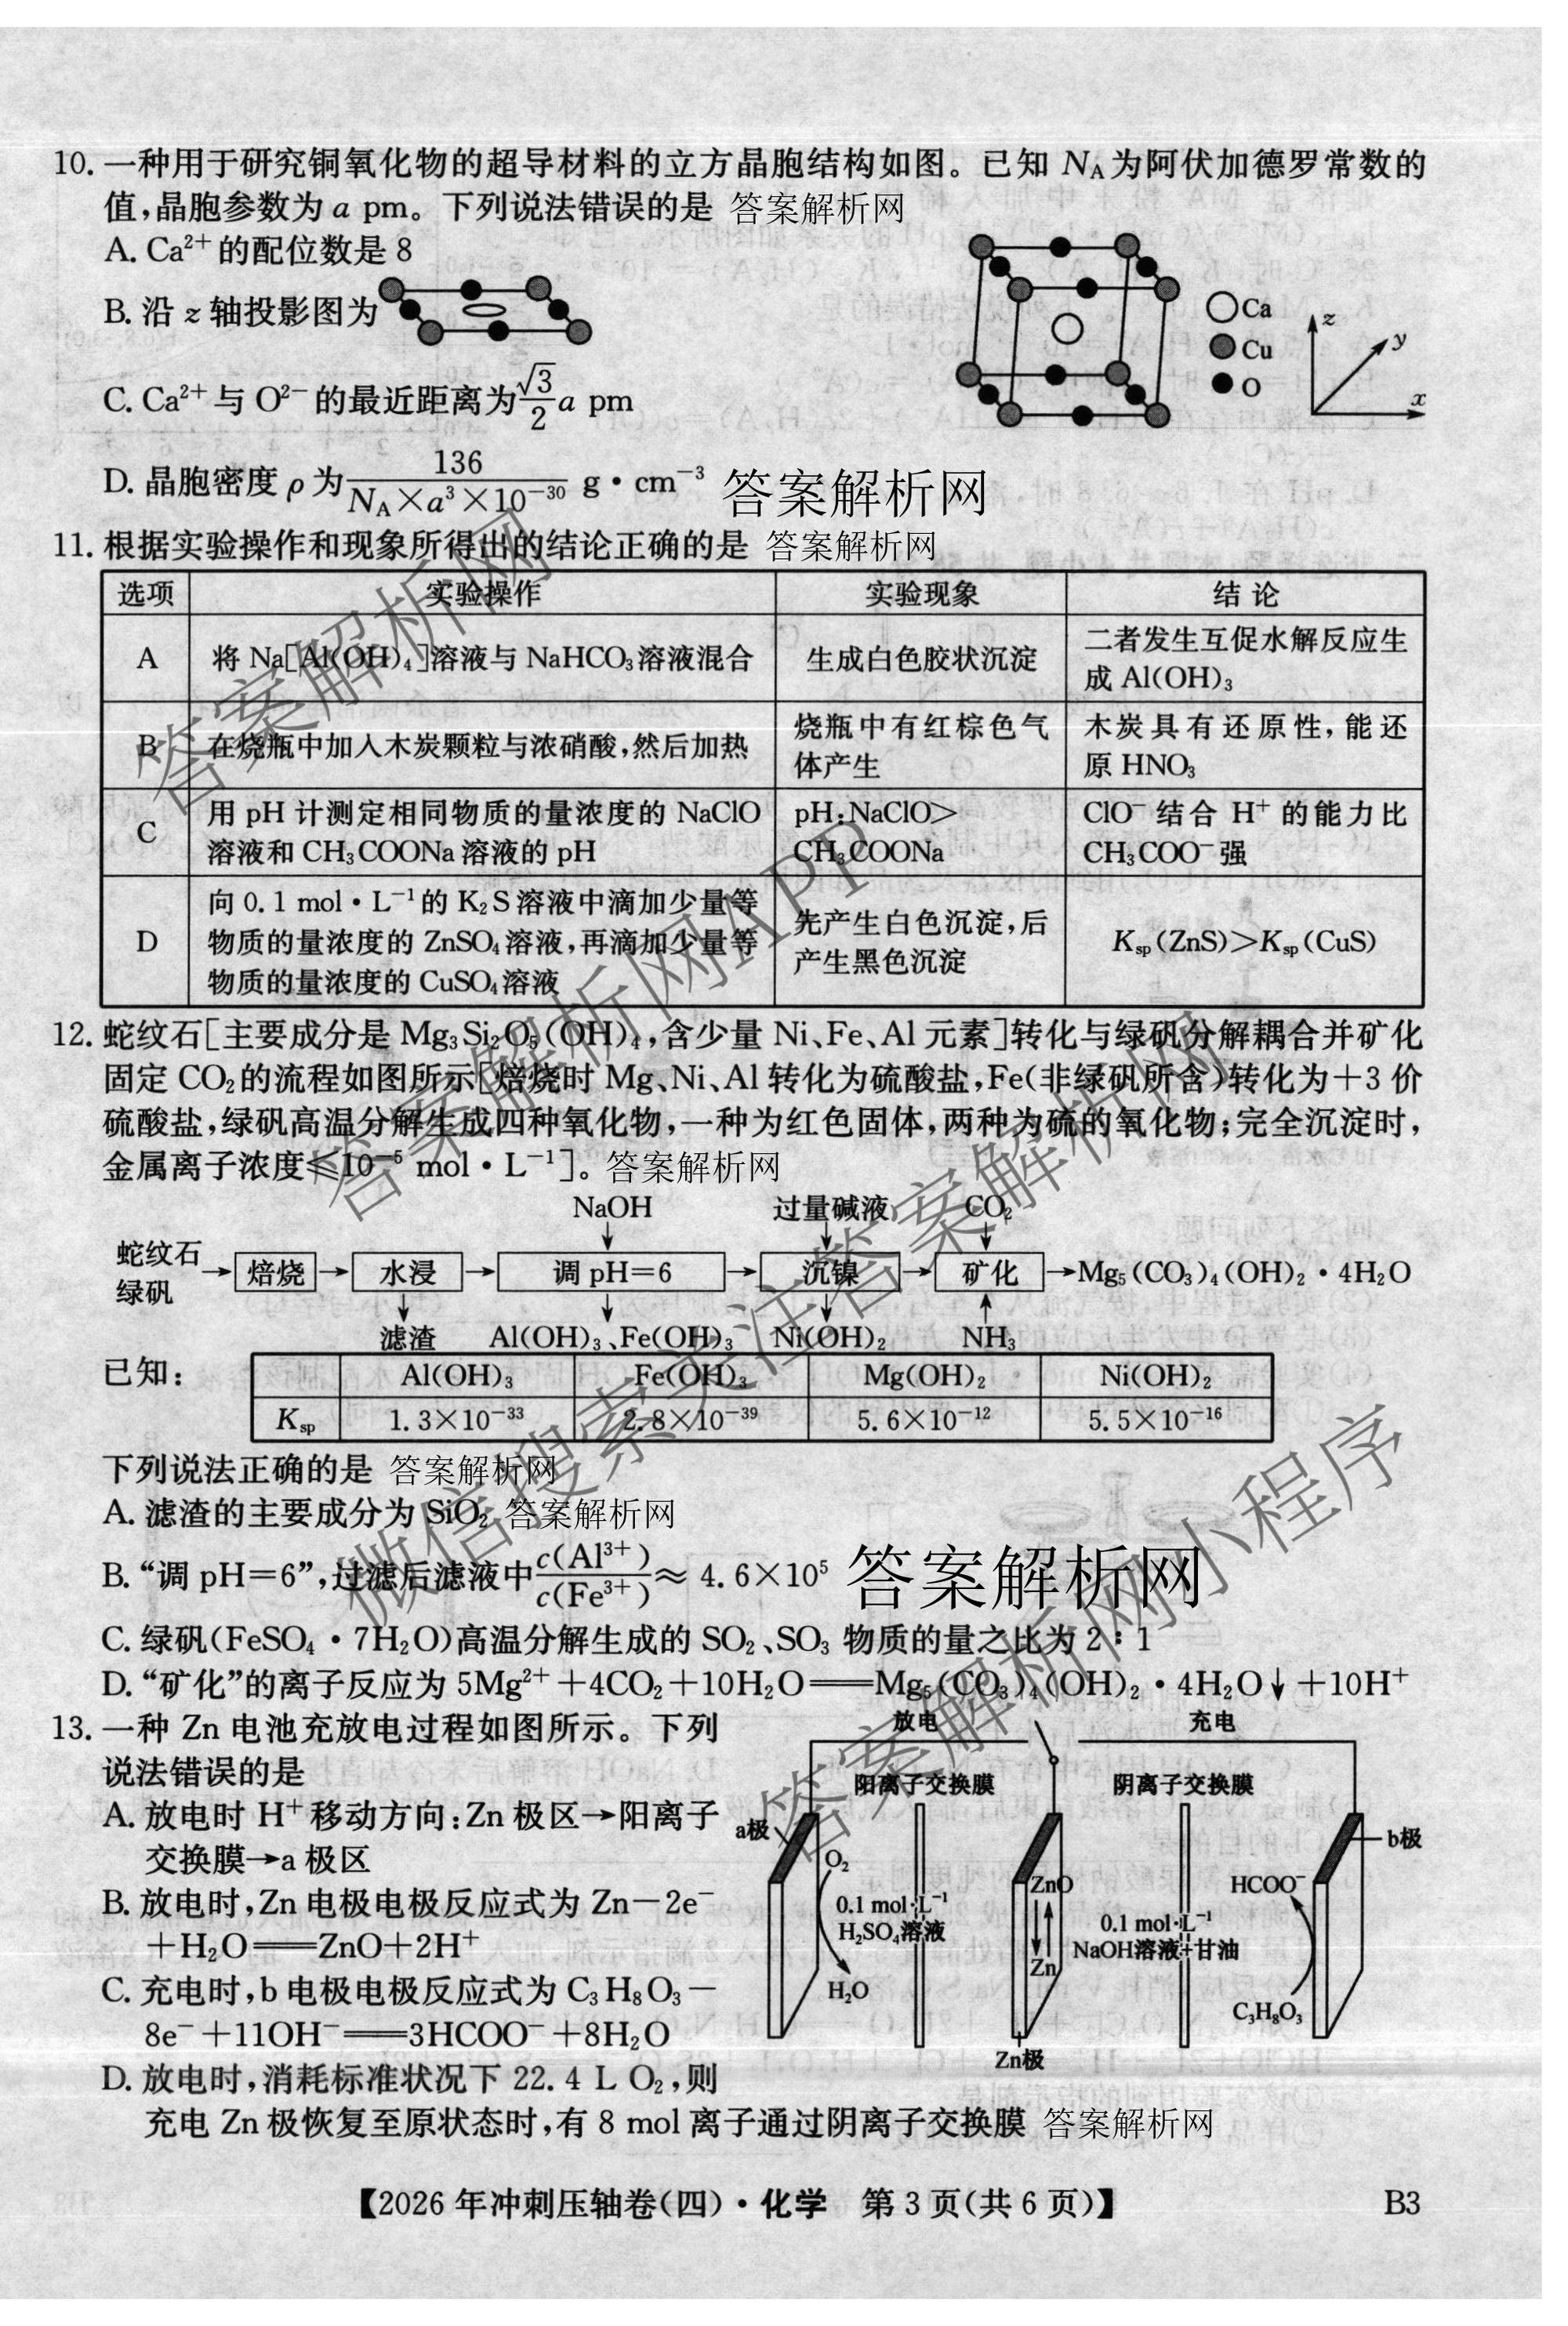 10. 一种用于研究铜氧化物的超导材料的立方晶胞结构如图。已知 N_A 为阿伏加德罗常数的
值,晶胞参数为 a pm。下列说法错误的是 答案解析网
A. Ca²⁺ 的配位数是 8
B. 沿 z 轴投影图为
C. Ca²⁺ 与 O²⁻ 的最近距离为 √3/2 a pm
D. 晶胞密度 ρ 为 136/(N_A×a³×10⁻³⁰) g·cm⁻³ 答案解析网
Ca
Cu
O
z
y
x
11. 根据实验操作和现象所得出的结论正确的是 答案解析网
选项 实验操作 实验现象 结 论
A 将 Na[Al(OH)₄]溶液与 NaHCO₃溶液混合 生成白色胶状沉淀 二者发生互促水解反应生
成 Al(OH)₃
B 在烧瓶中加入木炭颗粒与浓硝酸,然后加热 烧瓶中有红棕色气
体产生 木炭具有还原性,能还
原 HNO₃
C 用 pH 计测定相同物质的量浓度的 NaClO
溶液和 CH₃COONa 溶液的 pH pH:NaClO>
CH₃COONa ClO⁻ 结合 H⁺ 的能力比
CH₃COO⁻强
D 向 0.1 mol·L⁻¹的 K₂S 溶液中滴加少量等
物质的量浓度的 ZnSO₄溶液,再滴加少量等
物质的量浓度的 CuSO₄溶液 先产生白色沉淀,后
产生黑色沉淀 Ksp(ZnS)>Ksp(CuS)
12. 蛇纹石[主要成分是 Mg₃Si₂O₅(OH)₄,含少量 Ni、Fe、Al 元素]转化与绿矾分解耦合并矿化
固定 CO₂的流程如图所示[焙烧时 Mg、Ni、Al 转化为硫酸盐,Fe(非绿矾所含)转化为+3 价
硫酸盐,绿矾高温分解生成四种氧化物,一种为红色固体,两种为硫的氧化物;完全沉淀时,
金属离子浓度≤10⁻⁵ mol·L⁻¹]。答案解析网
NaOH 过量碱液 CO₂
蛇纹石
绿矾 → 焙烧 → 水浸 → 调 pH=6 → 沉镍 → 矿化 → Mg₅(CO₃)₄(OH)₂·4H₂O
滤渣 Al(OH)₃、Fe(OH)₃ Ni(OH)₂ NH₃
已知:
Al(OH)₃ Fe(OH)₃ Mg(OH)₂ Ni(OH)₂
Ksp 1.3×10⁻³³ 2.8×10⁻³⁹ 5.6×10⁻¹² 5.5×10⁻¹⁶
下列说法正确的是 答案解析网
A. 滤渣的主要成分为 SiO₂ 答案解析网
B. “调 pH=6”,过滤后滤液中 c(Al³⁺)/c(Fe³⁺) ≈ 4.6×10⁵ 答案解析网
C. 绿矾(FeSO₄·7H₂O)高温分解生成的 SO₂、SO₃ 物质的量之比为 2∶1
D. “矿化”的离子反应为 5Mg²⁺+4CO₂+10H₂O══Mg₅(CO₃)₄(OH)₂·4H₂O↓+10H⁺
13. 一种 Zn 电池充放电过程如图所示。下列
说法错误的是
A. 放电时 H⁺ 移动方向:Zn 极区→阳离子
交换膜→a 极区
B. 放电时,Zn 电极电极反应式为 Zn-2e⁻
+H₂O══ZnO+2H⁺
C. 充电时,b 电极电极反应式为 C₃H₈O₃-
8e⁻+11OH⁻══3HCOO⁻+8H₂O
D. 放电时,消耗标准状况下 22.4 L O₂,则
充电 Zn 极恢复至原状态时,有 8 mol 离子通过阴离子交换膜 答案解析网
放电 充电
阳离子交换膜 阴离子交换膜
a极 b极
O₂ ZnO HCOO⁻
0.1 mol·L⁻¹
H₂SO₄溶液
0.1 mol·L⁻¹
NaOH溶液+甘油
Zn
H₂O C₃H₈O₃
Zn极
【2026 年冲刺压轴卷(四)·化学 第 3 页(共 6 页)】 B3
答案解析网
答案解析网APP
微信搜索关注答案解析网
答案解析网小程序